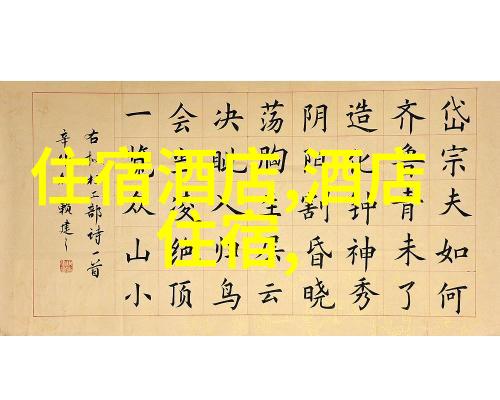 住宿酒店,酒店
住宿,
岱宗夫如何
齐鲁青未了
造化钟神秀
阴阳割昏晓
荡胸生层云
决眦入归鸟
会当凌绝顶
一览众山小
右杜工部诗一首
辛 赖建